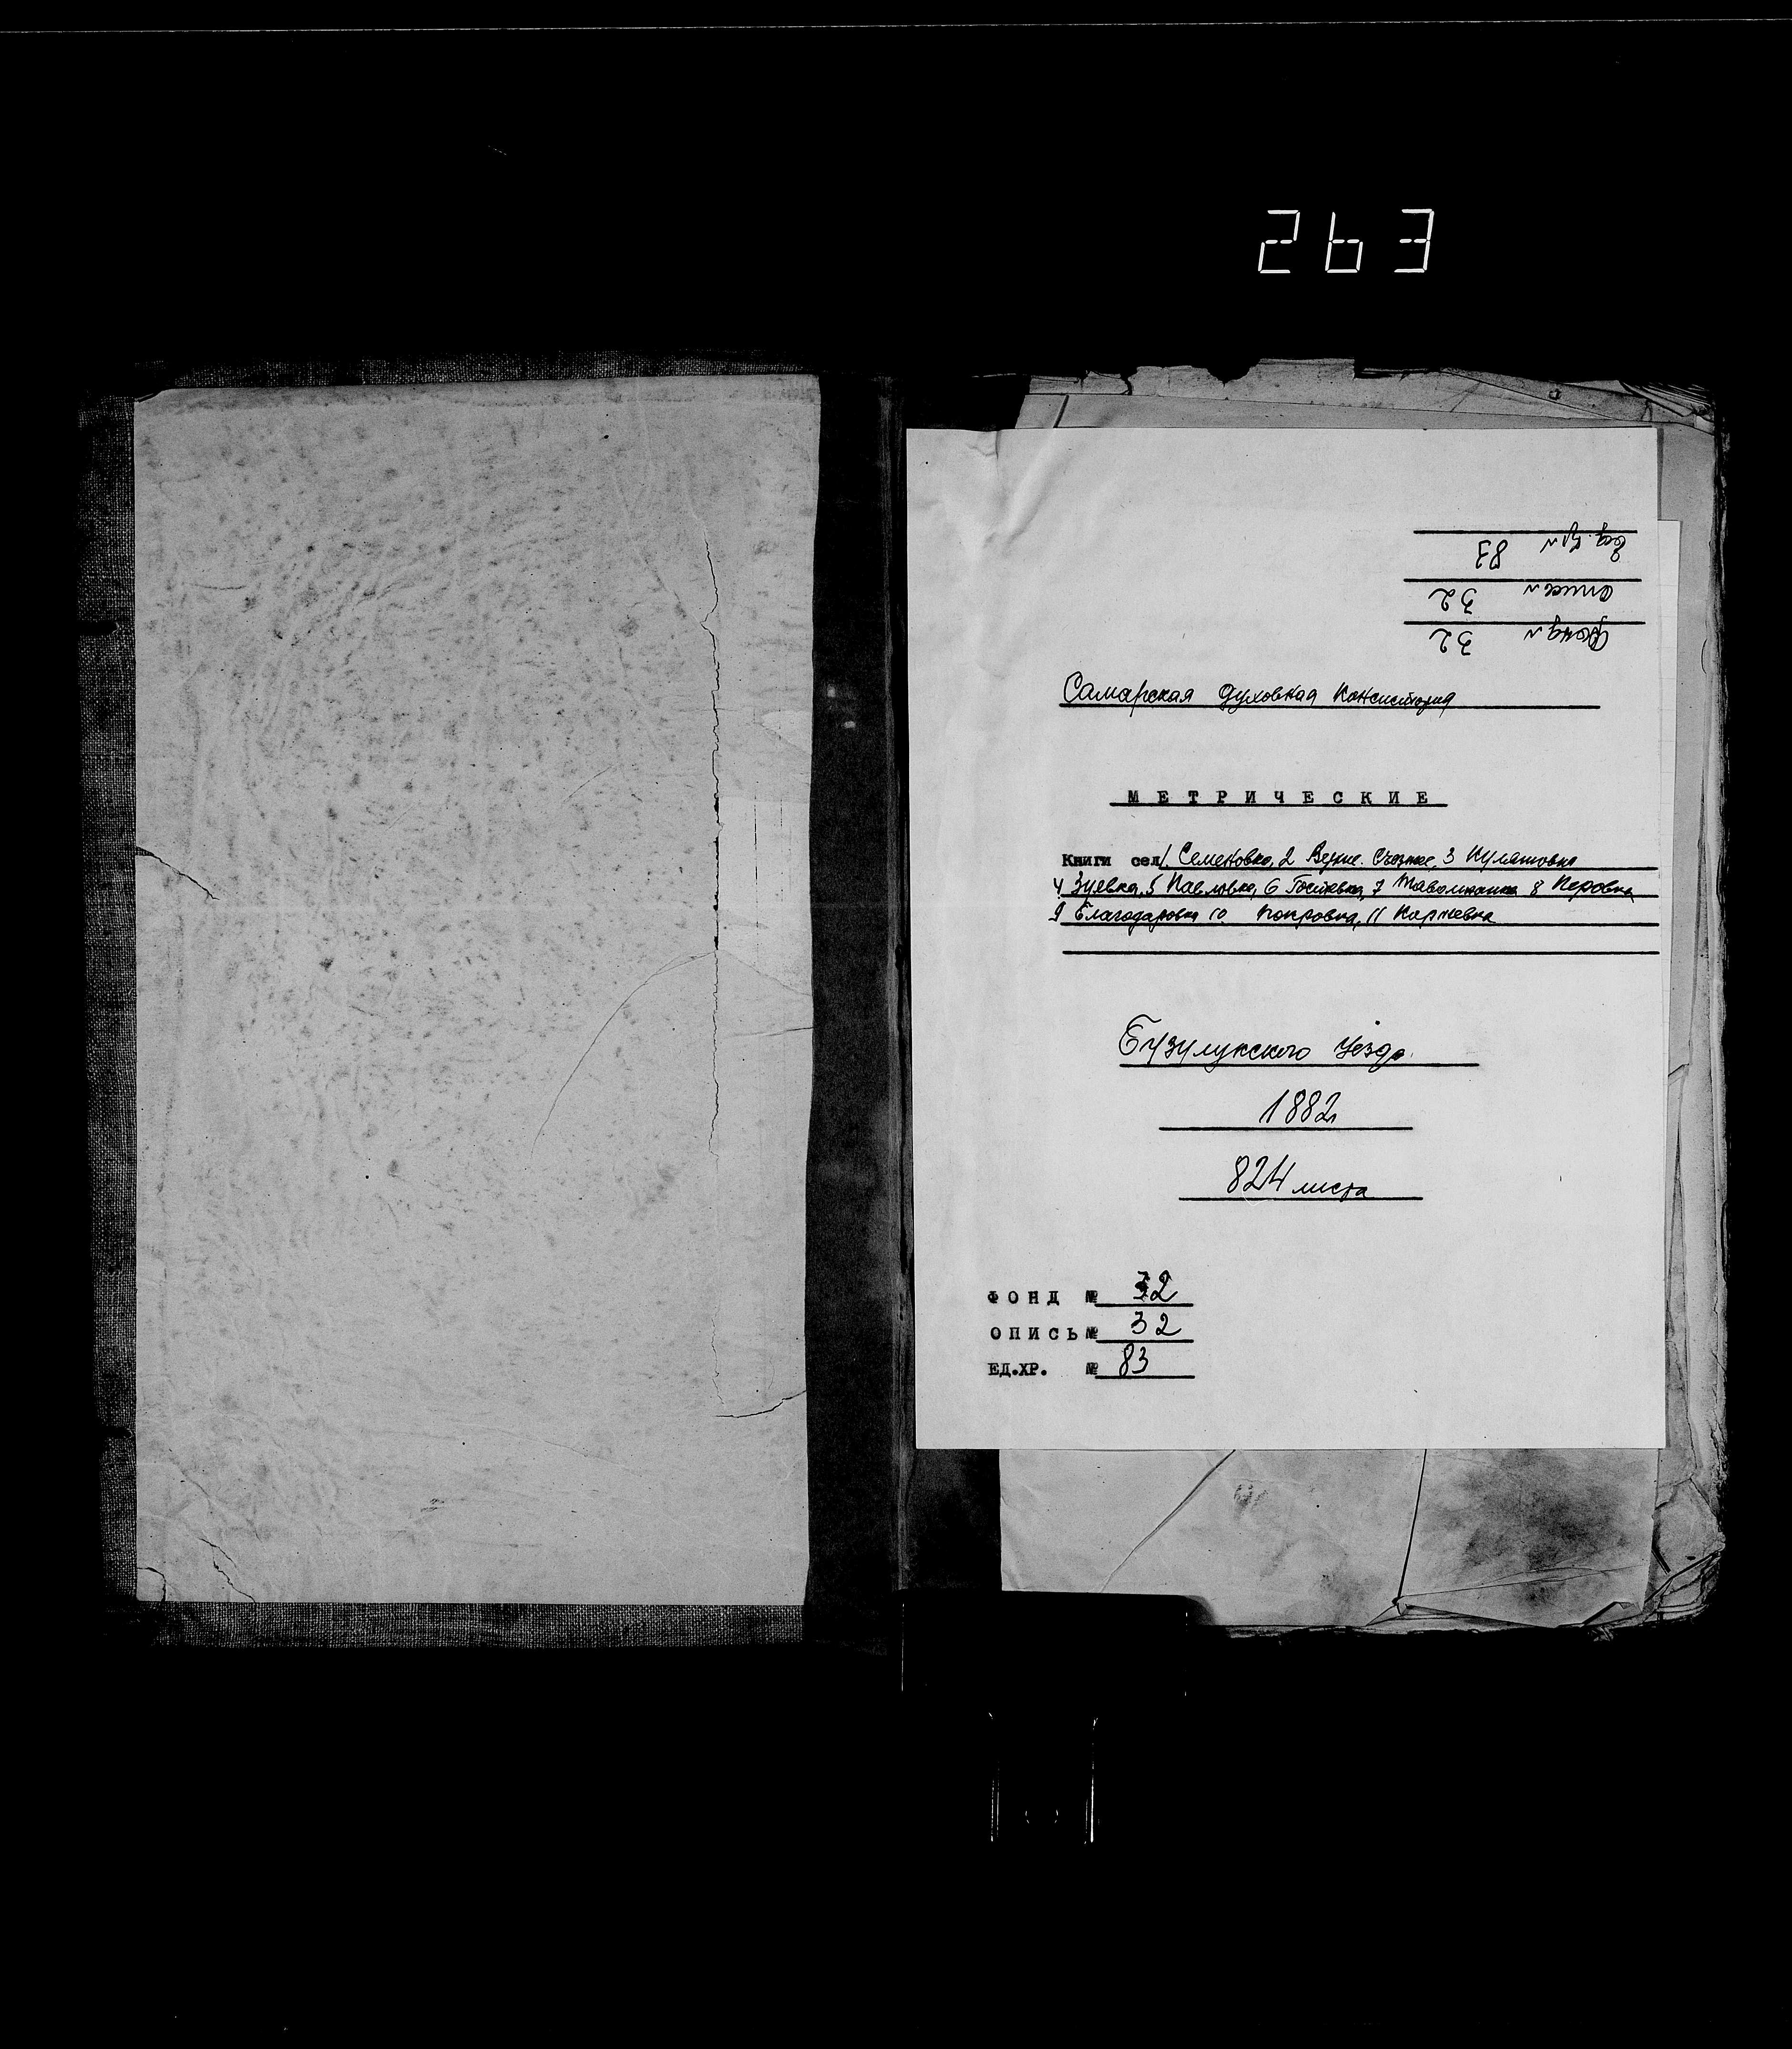 263
Фонд № 32
Опись 32
Ед. хр № 83
Самарская Духовная Консистория
МЕТРИЧЕСКИЕ
Книги сел 1. Семеновка, 2 Верхне. Съезжее, 3 Куляшовка
4 Зуевка, 5 Павловка, 6 Гостевка, 7 8 Перовка
9 Благодаровка 10. Покровка, 11 Каржевка
Бузулукского Уезда.
1882
824 листа
ФОНД № 32
ОПИСЬ № 32
ЕД.ХР. № 83